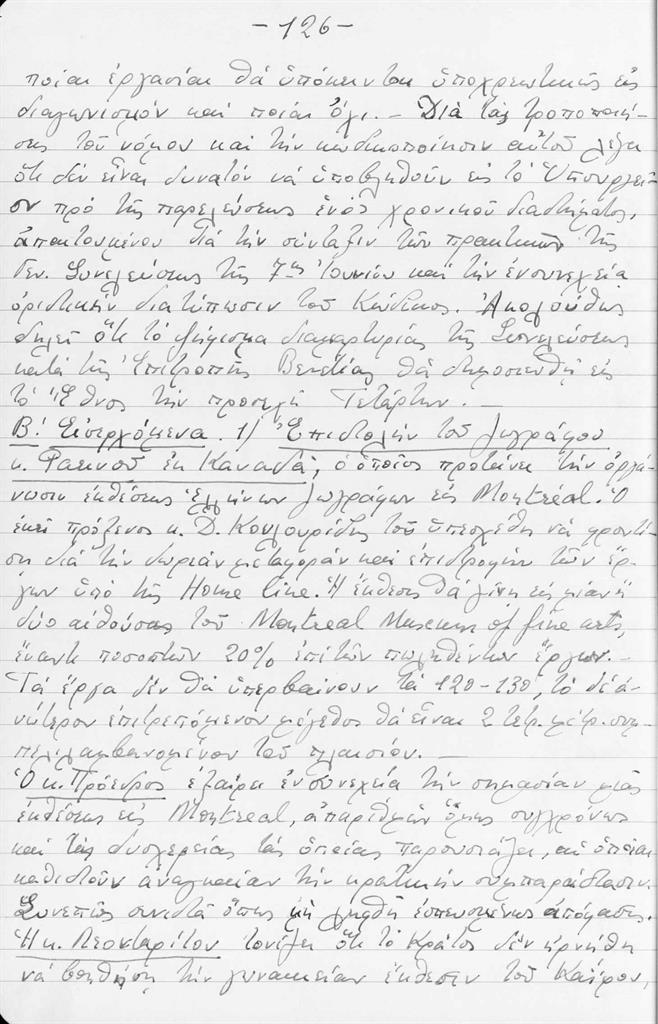 - 126 -
ποῖαι ἐργασίαι θά ὑπόκεινται ὑποχρεωτικῶς εἰς
διαγωνισμόν καί ποῖαι ὄχι. — Διά τάς τροποποιή-
σεις τοῦ νόμου καί τήν κωδικοποίησιν αὐτοῦ λέγει
ὅτι δέν εἶναι δυνατόν νά ὑποβληθοῦν εἰς τό Ὑπουργεῖ-
ον πρό τῆς παρελεύσεως ἑνός χρονικοῦ διαστήματος,
ἀπαιτουμένου διά τήν σύνταξιν τῶν πρακτικῶν τῆς
Γεν. Συνελεύσεως τῆς 7ης Ἰουνίου καί τήν ἐν συνεχείᾳ
ὁριστικήν διατύπωσιν τοῦ Κώδικος. Ἀκολούθως
δηλεῖ ὅτι τό ψήφισμα διαμαρτυρίας τῆς Συνελεύσεως
κατά τῆς Ἐπιτροπῆς Βενετίας θά δημοσιευθῇ εἰς
τό Ἔθνος τήν προσεχῆ Τετάρτην. —
Β! Εἰσερχόμενα. 1/ Ἐπιστολήν τοῦ ζωγράφου
κ. Φαεινοῦ ἐκ Καναδᾶ, ὁ ὁποῖος προτείνει τήν ὀργά-
νωσιν ἐκθέσεως Ἑλλήνων ζωγράφων εἰς Montréal. Ὁ
ἐκεῖ πρόξενος κ. Δ. Κουλουρίδης τοῦ ὑπεσχέθη νά φροντί-
σῃ διά τήν δωρεάν μεταφοράν καί ἐπιστροφήν τῶν ἔρ-
γων ὑπό τῆς Home line. Ἡ ἔκθεσις θά γίνῃ εἰς μίαν ἤ
δύο αἰθούσας τοῦ Montreal Museum of fine arts,
ἔναντι ποσοστῶν 20% ἐπί τῶν πωληθέντων ἔργων. —
Τά ἔργα δέν θά ὑπερβαίνουν τά 120-130, τό δέ ἀ-
νώτερον ἐπιτρεπόμενον μέγεθος θά εἶναι 2 τετρ. μέτρ. συμ-
περιλαμβανομένου τοῦ πλαισίου. —
Ὁ κ. Πρόεδρος ἐξαίρει ἐν συνεχείᾳ τήν σημασίαν μιᾶς
ἐκθέσεως εἰς Montreal, ἀπαριθμῶν ὅμως συγχρόνως
καί τάς δυσχερείας τάς ὁποίας παρουσιάζει, αἱ ὁποῖαι
καθιστοῦν ἀναγκαίαν τήν κρατικήν συμπαράστασιν.
Συνεπῶς συνιστᾶ ὅπως μή ληφθῇ ἐσπευσμένως ἀπόφασις.
Ἡ κ. Λεονταρίτου τονίζει ὅτι τό Κράτος δέν ἠρνήθη
νά βοηθήσῃ τήν γυναικείαν ἔκθεσιν τοῦ Καΐρου,